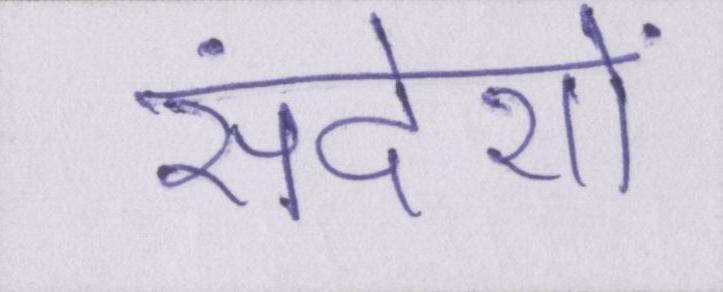 संदेशों